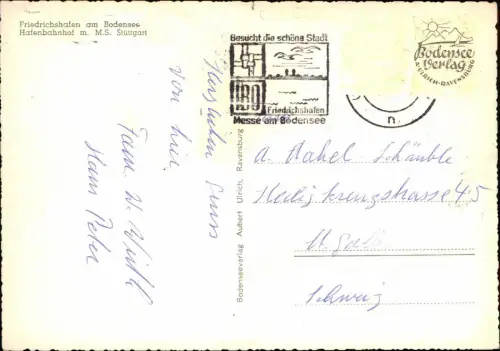 Friedrichshafen am Bodensee
Hafenbahnhof m. M.S. Stuttgart
Besucht die schöne Stadt
IBO
Friedrichshafen
Messe am Bodensee
Bodensee
Verlag
A. ULRICH-RAVENSBURG
n
Bodenseeverlag Aubert Ulrich, Ravensburg
Herzlichen Gruss
von hier
Fam.
Hans Peter
A. Rahel Schäuble
Heiligkreuzstrasse 45
St. Gallen
Schweiz